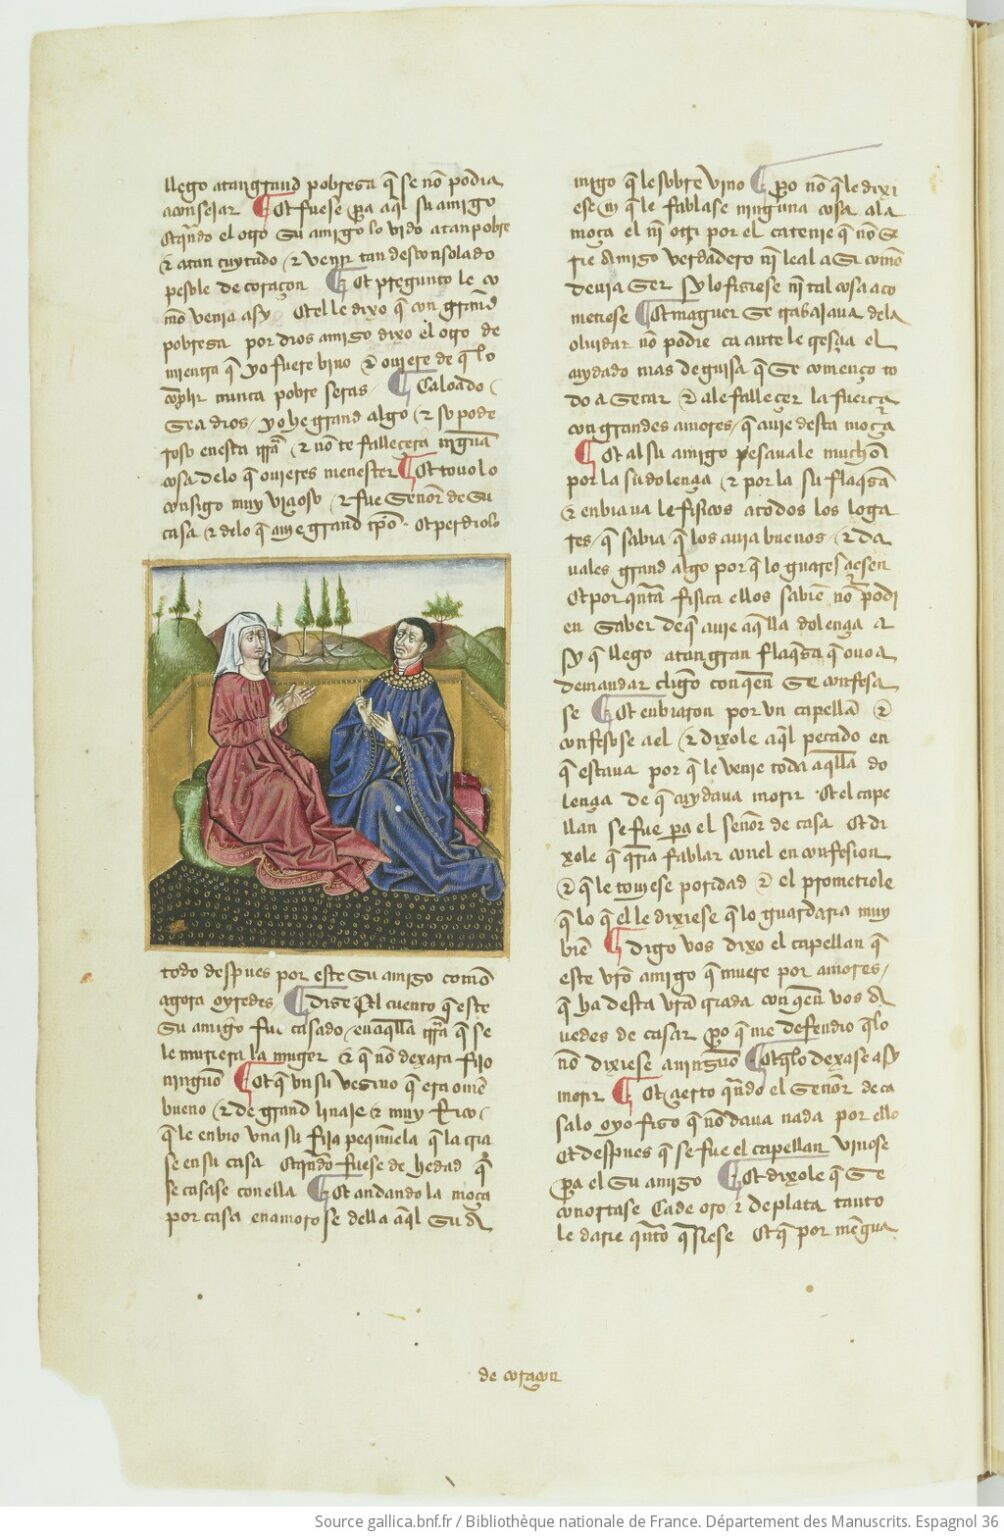 llego atan grand pobreza q̃ se nõ podia
aconsejar ¶ Et fuese pa aql̃ su amigo
Et qñdo el otro su amigo lo vido atan pobre
& atan cuytado / & venir tan desconsolado
pesole de coraçon ¶ Et pregunto le co
mõ venia asy Et el le dixo q̃ con grand
pobreza por dios amigo dixo el otro de
mientra q̃ yo fuere bivo & oviere de q̃ lo
conplir nunca pobre seras ¶ Ca loado
sea dios / yo he grand algo / & so pode
roso en esta trrã / & nõ te falleçera ningũa
cosa delo q̃ ovieres menester ¶ Et tovolo
consigo muy viçioso / & fue señor de su
casa & delo q̃ avie grand tpõ Et perdiolo
todo despues por este su amigo comõ
agora oyredes ¶ Dise q̃l cuento q̃ este
su amigo fue casado / en aq̃lla trrã q̃ se
le muriera la muger & q̃ nõ dexara fijo
ningunõ ¶ Et q̃ vn su vezino q̃ era omẽ
bueno & de grand linaje & muy rrico
q̃ le enbio vna su fija pequñela q̃ la cria
se en su casa Et qñdo fuese de hedad q̃
se casase con ella ¶ Et andando la moça
por casa enamoro se della aql̃ su a
migo q̃ le sobre vino ¶ Pero nõ q̃ le dixi
ese nj̃ q̃ le fablase ninguna cosa ala
moça el nj̃ otri por el ca tenie q̃ nõ se
rie amigo verdadero nj̃ leal asi comõ
devia ser sy lo fiziese nj̃ tal cosa aco
metiese ¶ Et maguer se trabajava dela
olvidar nõ podie ca ante le cresçia el
cuydado mas de guisa q̃ se començo to
do a secar & ale falleçer la fuerça
con grandes amores / q̃ avie desta moça
¶ Et al su amigo pesavale mucho
por la su dolençia & por la su flaq̃za
& enbiava le fisicos a todos los loga
res / q̃ sabia q̃ los avia buenos / & da
vales grand algo por q̃ lo guaresçiesen
Et por qñta fisica ellos sabiẽ nõ podi
en saber de q̃ avie aq̃lla dolençia a
sy q̃ llego atan gran flaq̃za q̃ ovo a
demandar cligo con q̃en se confesa
se ¶ Et enbiaron por vn capellã &
confesose a el & dixole aql̃ pecado en
q̃ estava por q̃ le venie toda aq̃lla do
lençia de q̃ cuydava morir Et el cape
llan se fue pa el señor de casa Et di
xole q̃ q̃ria fablar con el en confesion
& q̃ le toviese poridad & el prometiole
q̃ lo q̃ el le dixiese q̃ lo guardaria muy
biẽ ¶ Digo vos dixo el capellan q̃
este vrõ amigo q̃ muere por amores /
q̃ ha desta vrã criada con q̃en vos a
vedes de casar pero q̃ me defendio q̃ lo
nõ dixiese a ningunõ Et q̃ lo dexase asy
morir ¶ Et çierto qñdo el señor de ca
sa lo oyo fizo q̃ nõ dava nada por ello
Et despues q̃ se fue el capellan vinose
pa el su amigo ¶ Et dixole q̃ se
conortase Ca de oro & de plata tanto
le darie qñto q̃siese Et q̃ por mẽgua
de coraçon
Source gallica.bnf.fr / Bibliothèque nationale de France. Département des Manuscrits. Espagnol 36